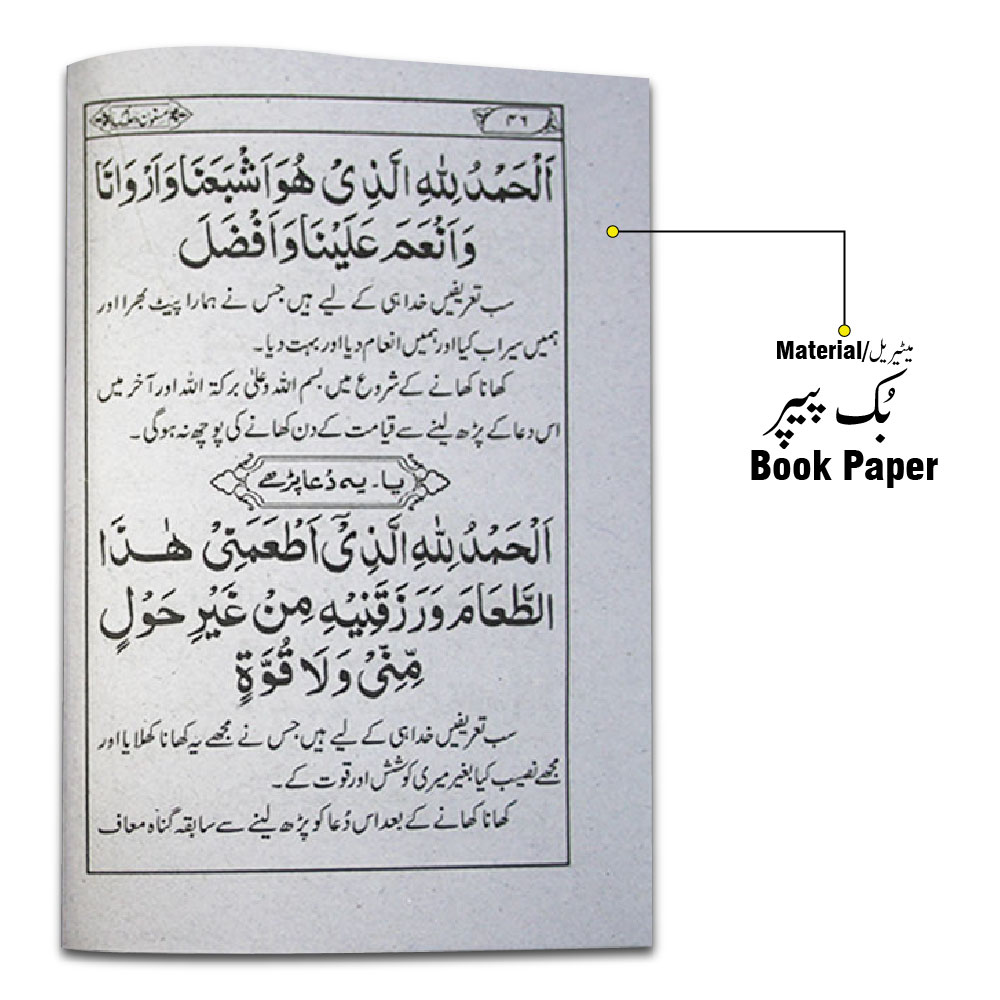 ۴۶ مسنون دعائیں
اَلْحَمْدُ لِلّٰهِ الَّذِیْ هُوَ اَشْبَعَنَا وَاَرْوَانَا
وَاَنْعَمَ عَلَیْنَا وَاَفْضَلَ
سب تعریفیں خدا ہی کے لیے ہیں جس نے ہمارا پیٹ بھرا اور
ہمیں سیراب کیا اور ہمیں انعام دیا اور بہت دیا۔
کھانا کھانے کے شروع میں بسم اللہ وعلیٰ برکۃ اللہ اور آخر میں
اس دعا کے پڑھ لینے سے قیامت کے دن کھانے کی پوچھ نہ ہوگی۔
یا۔ یہ دُعا پڑھے
اَلْحَمْدُ لِلّٰهِ الَّذِیْٓ اَطْعَمَنِیْ هٰذَا
الطَّعَامَ وَرَزَقَنِیْهِ مِنْ غَیْرِ حَوْلٍ
مِّنِّیْ وَلَا قُوَّةٍ
سب تعریفیں خدا ہی کے لیے ہیں جس نے مجھے یہ کھانا کھلایا اور
مجھے نصیب کیا بغیر میری کوشش اور قوت کے۔
کھانا کھانے کے بعد اس دُعا کو پڑھ لینے سے سابقہ گناہ معاف
Material/میٹیریل
بُک پیپر
Book Paper